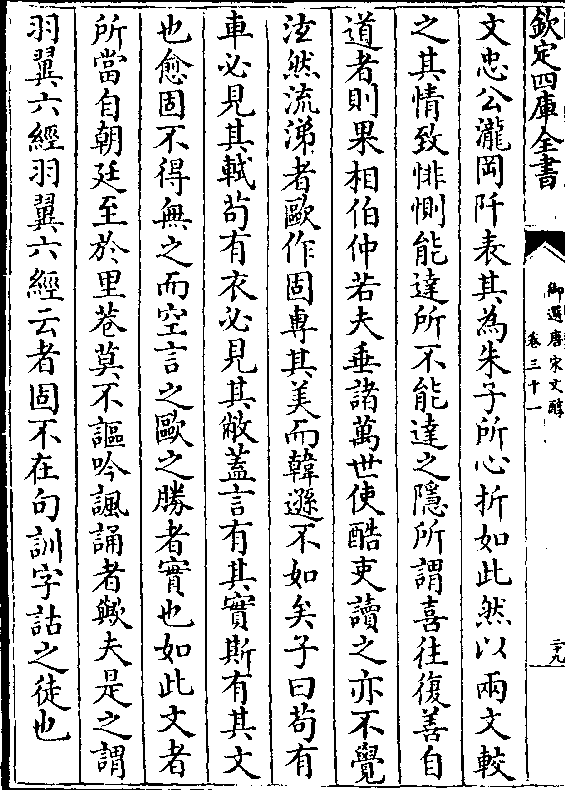 欽定四庫全書
御選唐宋文醇
卷三十一
二十九
文忠公瀧岡阡表其為朱子所心折如此然以兩文較
之其情致悱惻能達所不能達之隱所謂喜往復善自
道者則果相伯仲若夫垂諸萬世使酷吏讀之亦不覺
泫然流涕者歐作固專其美而韓遜不如矣子曰苟有
車必見其軾苟有衣必見其敝蓋言有其實斯有其文
也愈固不得無之而空言之歐之勝者實也如此文者
所當自朝廷至於里巷莫不謳吟諷誦者歟夫是之謂
羽翼六經羽翼六經云者固不在句訓字詁之徒也